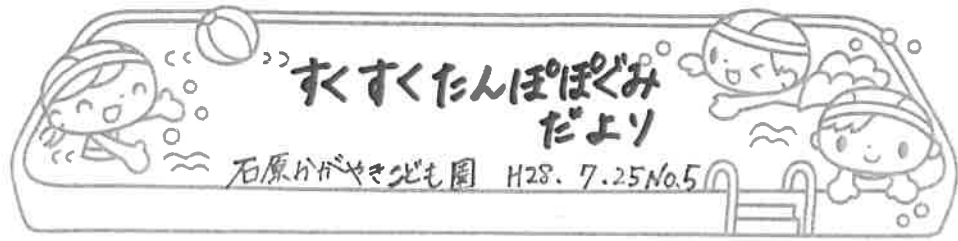 すくすくたんぽぽぐみ
だより
石原かがやきこども園 H28. 7.25 No.5